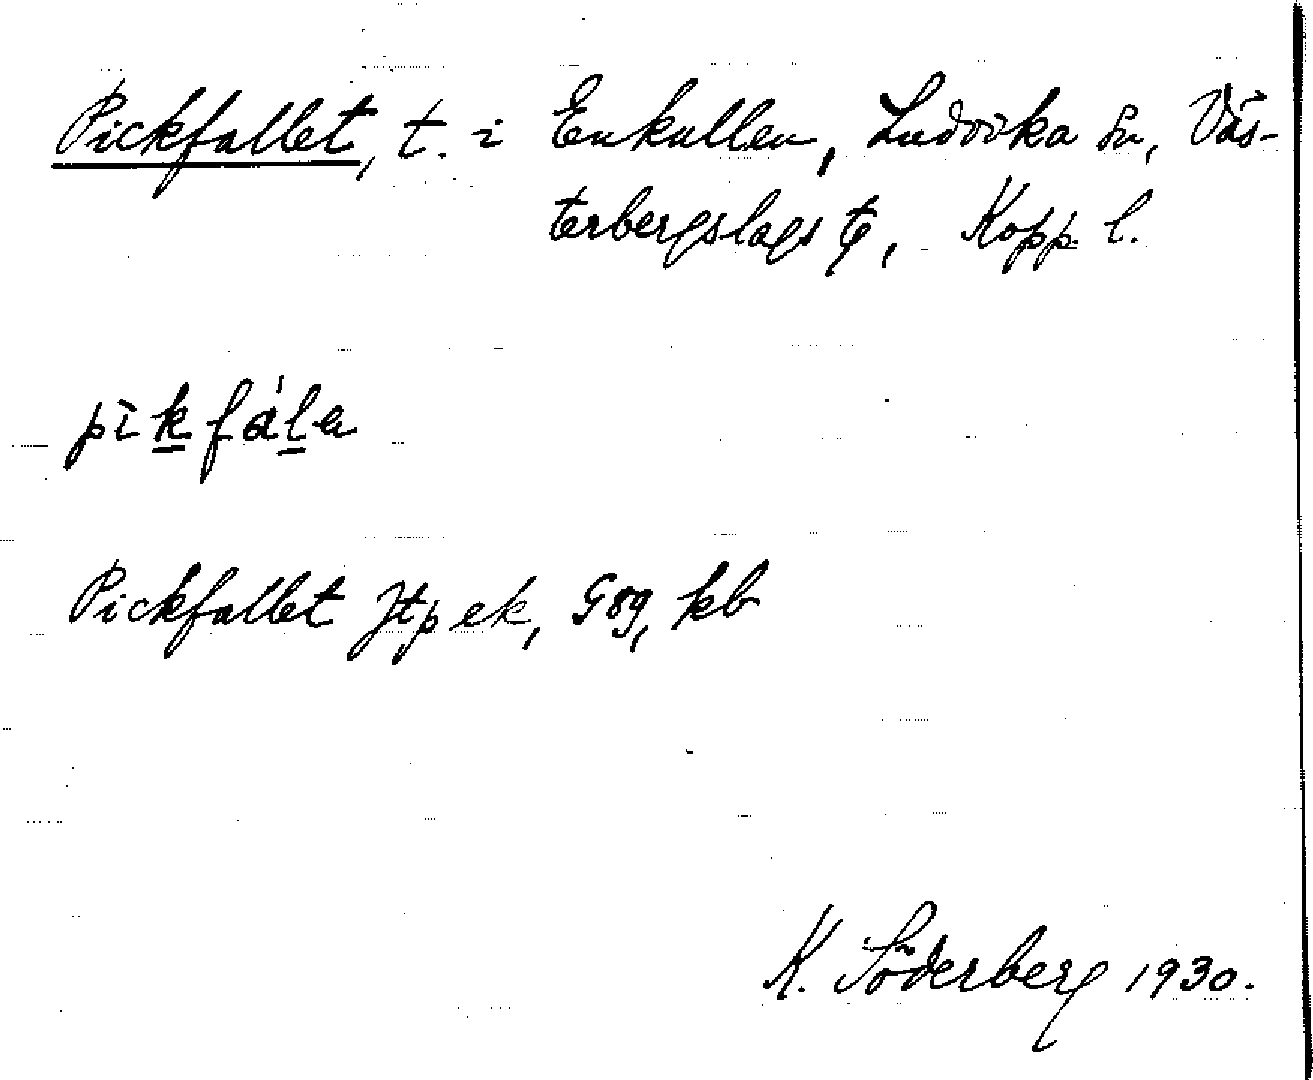 Pickfallet, t. i Enkullen, Ludvika sn, Väs-
terbergslags tg, Kopp. l.
pìkfála
Pickfallet Jtp ek, G89, kb
K. Söderberg 1930.